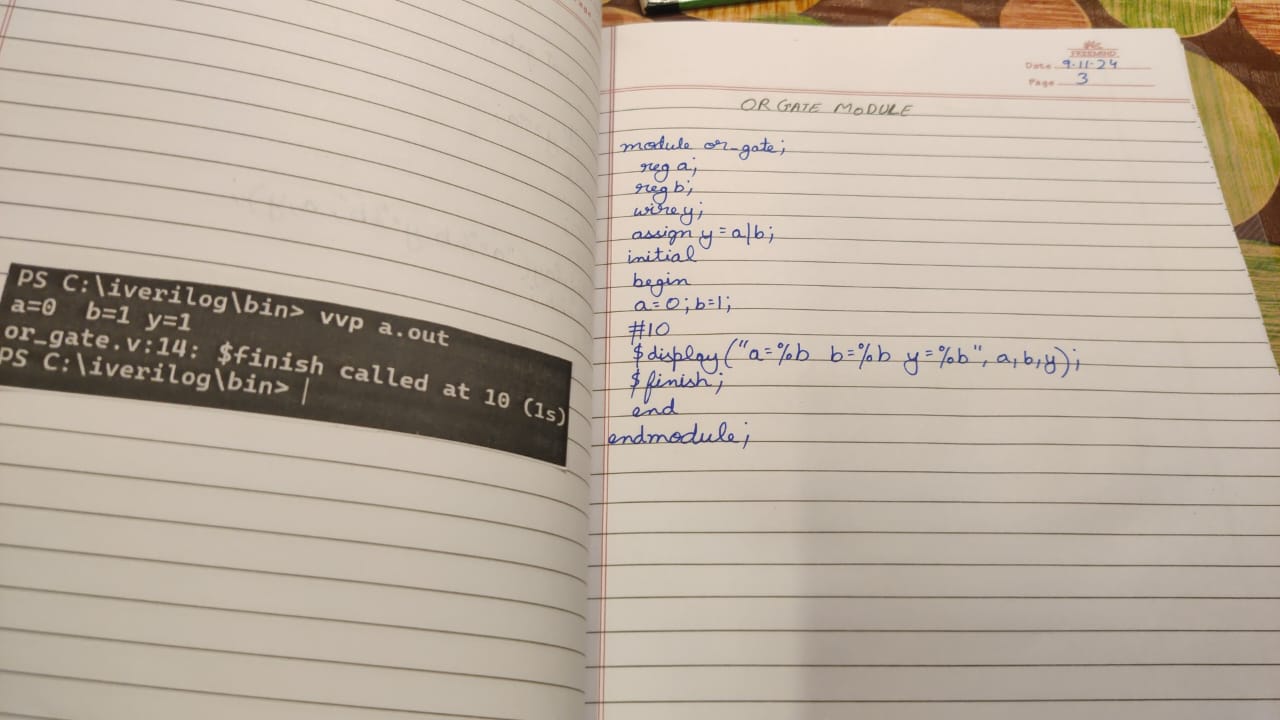 PS C:\iverilog\bin> vvp a.out
a=0  b=1 y=1
or_gate.v:14: $finish called at 10 (1s)
PS C:\iverilog\bin>
FREEMIND
Date 9.11.24
Page 3
OR GATE MODULE
module or_gate;
reg a;
reg b;
wire y;
assign y = a|b;
initial
begin
a=0; b=1;
#10
$display("a=%b b=%b y=%b", a,b,y);
$finish;
end
endmodule;